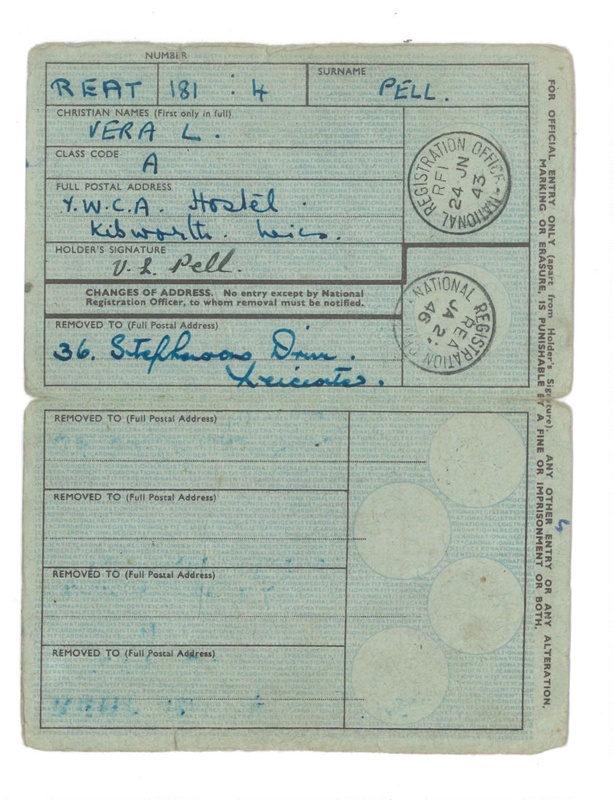 NUMBER
REAT 181 : 4
SURNAME
PELL.
CHRISTIAN NAMES (First only in full)
VERA L.
CLASS CODE
A
FULL POSTAL ADDRESS
Y.W.C.A. Hostel.
Kibworth. Leics.
HOLDER'S SIGNATURE
V. L. Pell.
CHANGES OF ADDRESS. No entry except by National
Registration Officer, to whom removal must be notified.
REMOVED TO (Full Postal Address)
36. Stephenson Drive.
Leicester.
NATIONAL REGISTRATION OFFICE
RFI
24 JN
43
NATIONAL REGISTRATION
REA
JA 2
46
REMOVED TO (Full Postal Address)
REMOVED TO (Full Postal Address)
REMOVED TO (Full Postal Address)
REMOVED TO (Full Postal Address)
FOR OFFICIAL ENTRY ONLY (apart from Holder's Signature). ANY OTHER ENTRY OR ANY ALTERATION,
MARKING OR ERASURE, IS PUNISHABLE BY A FINE OR IMPRISONMENT OR BOTH.